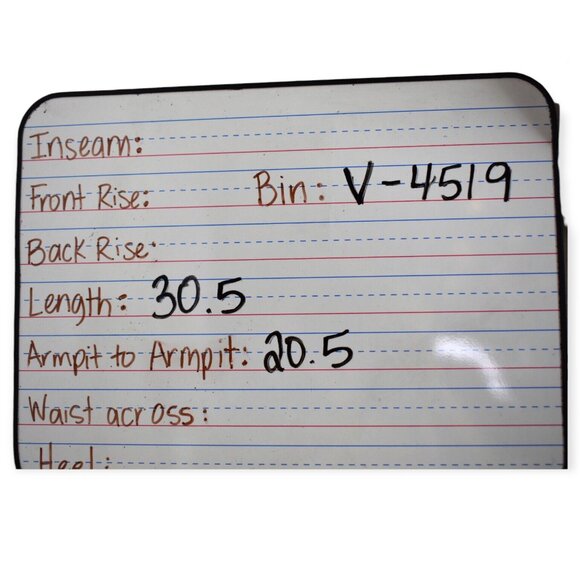 Inseam:
Front Rise: Bin: V-4519
Back Rise:
Length: 30.5
Armpit to Armpit: 20.5
Waist across:
Heel: